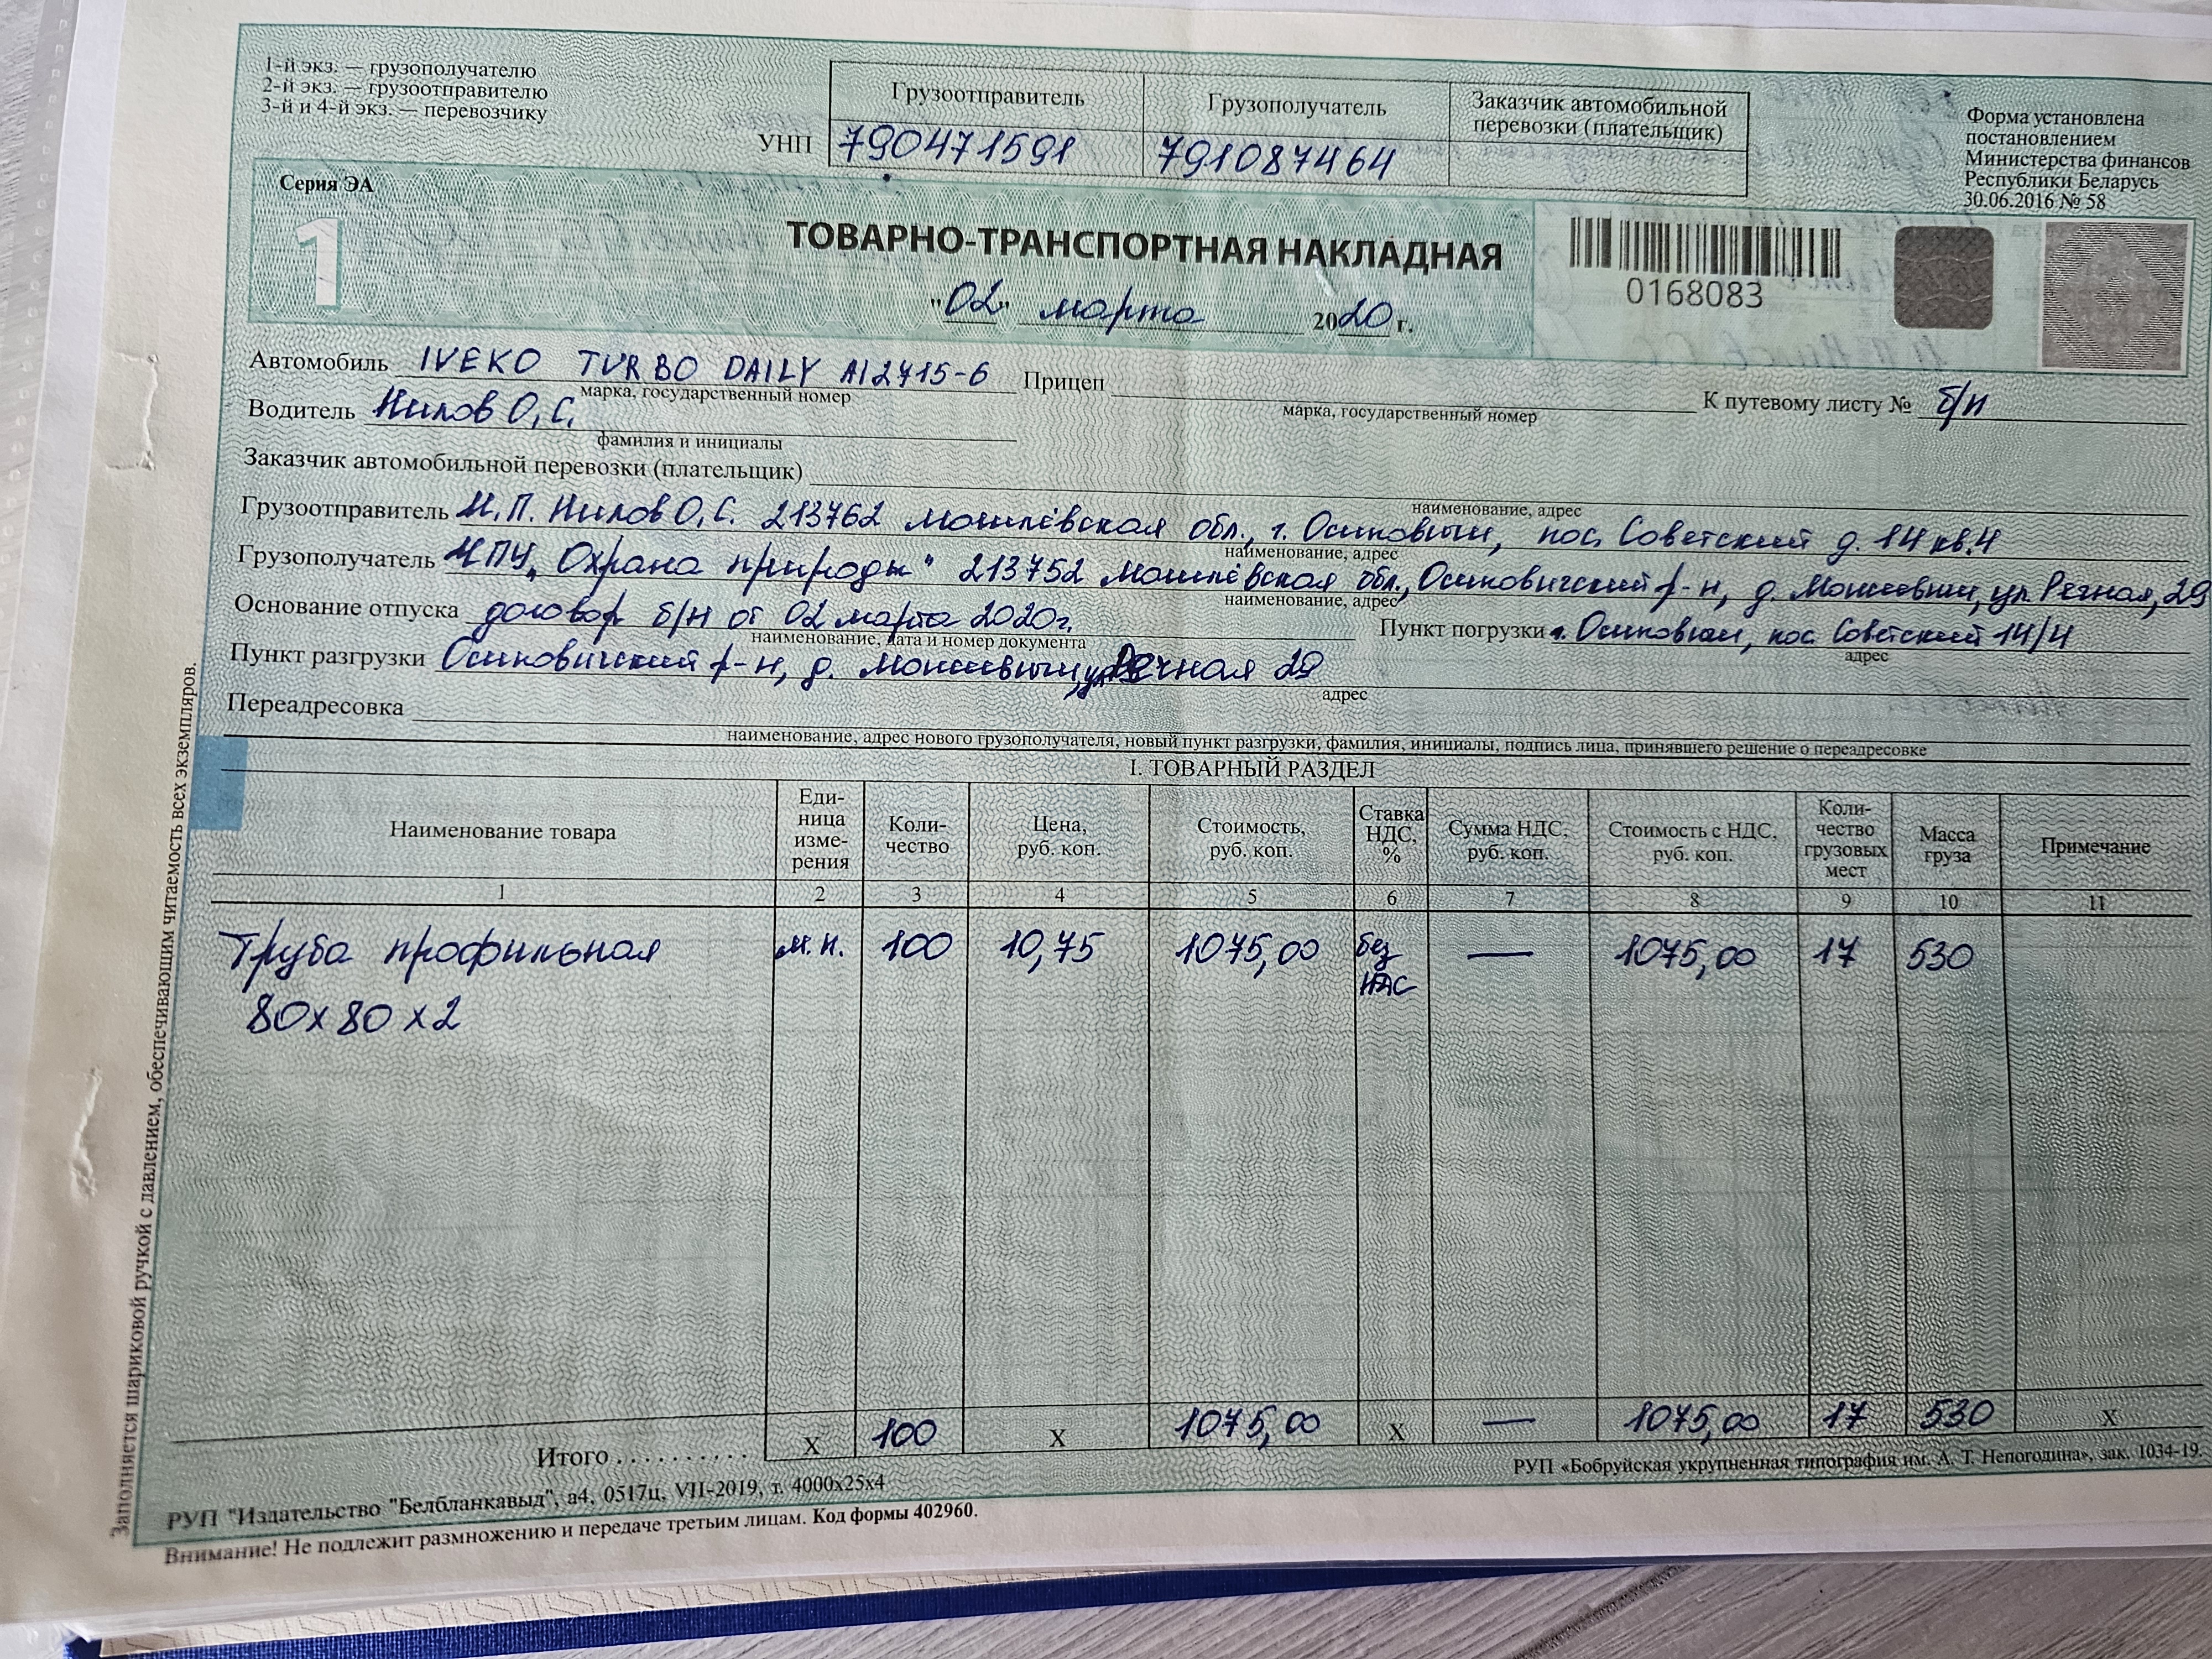 1-й экз. — грузополучателю
2-й экз. — грузоотправителю
3-й и 4-й экз. — перевозчику
Грузоотправитель Грузополучатель Заказчик автомобильной перевозки (плательщик)
УНП 790471591 791087464
Форма установлена
постановлением
Министерства финансов
Республики Беларусь
30.06.2016 № 58
Серия ЭА
1
ТОВАРНО-ТРАНСПОРТНАЯ НАКЛАДНАЯ
"02" марта 2020 г.
0168083
Автомобиль IVEKO TURBO DAILY AI2415-6 Прицеп К путевому листу № б/н
марка, государственный номер марка, государственный номер
Водитель Нилов О.С.
фамилия и инициалы
Заказчик автомобильной перевозки (плательщик)
наименование, адрес
Грузоотправитель И.П. Нилов О.С. 213762 Могилёвская обл., г. Осиповичи, пос. Советский д. 14 кв. 4
наименование, адрес
Грузополучатель „Охрана природы" 213752 Могилёвская обл., Осиповичский р-н, д. Моисеевичи, ул. Речная, 29
наименование, адрес
Основание отпуска договор б/н от 02 марта 2020г. Пункт погрузки г. Осиповичи, пос. Советский 14/4
наименование, дата и номер документа адрес
Пункт разгрузки Осиповичский р-н, д. Моисеевичи, ул. Речная 29
адрес
Переадресовка
наименование, адрес нового грузополучателя, новый пункт разгрузки, фамилия, инициалы, подпись лица, принявшего решение о переадресовке
I. ТОВАРНЫЙ РАЗДЕЛ
Наименование товара Еди-ница изме-рения Коли-чество Цена, руб. коп. Стоимость, руб. коп. Ставка НДС, % Сумма НДС, руб. коп. Стоимость с НДС, руб. коп. Коли-чество грузовых мест Масса груза Примечание
1 2 3 4 5 6 7 8 9 10 11
Труба профильная м.п. 100 10,75 1075,00 без НДС — 1075,00 17 530
80х80х2
Итого . . . . . . . . . . X 100 X 1075,00 X — 1075,00 17 530 X
РУП "Издательство "Белбланкавыд", а4, 0517ц, VII-2019, т. 4000х25х4
РУП «Бобруйская укрупненная типография им. А. Т. Непогодина», зак. 1034-19.
Внимание! Не подлежит размножению и передаче третьим лицам. Код формы 402960.
Заполняется шариковой ручкой с давлением, обеспечивающим читаемость всех экземпляров.